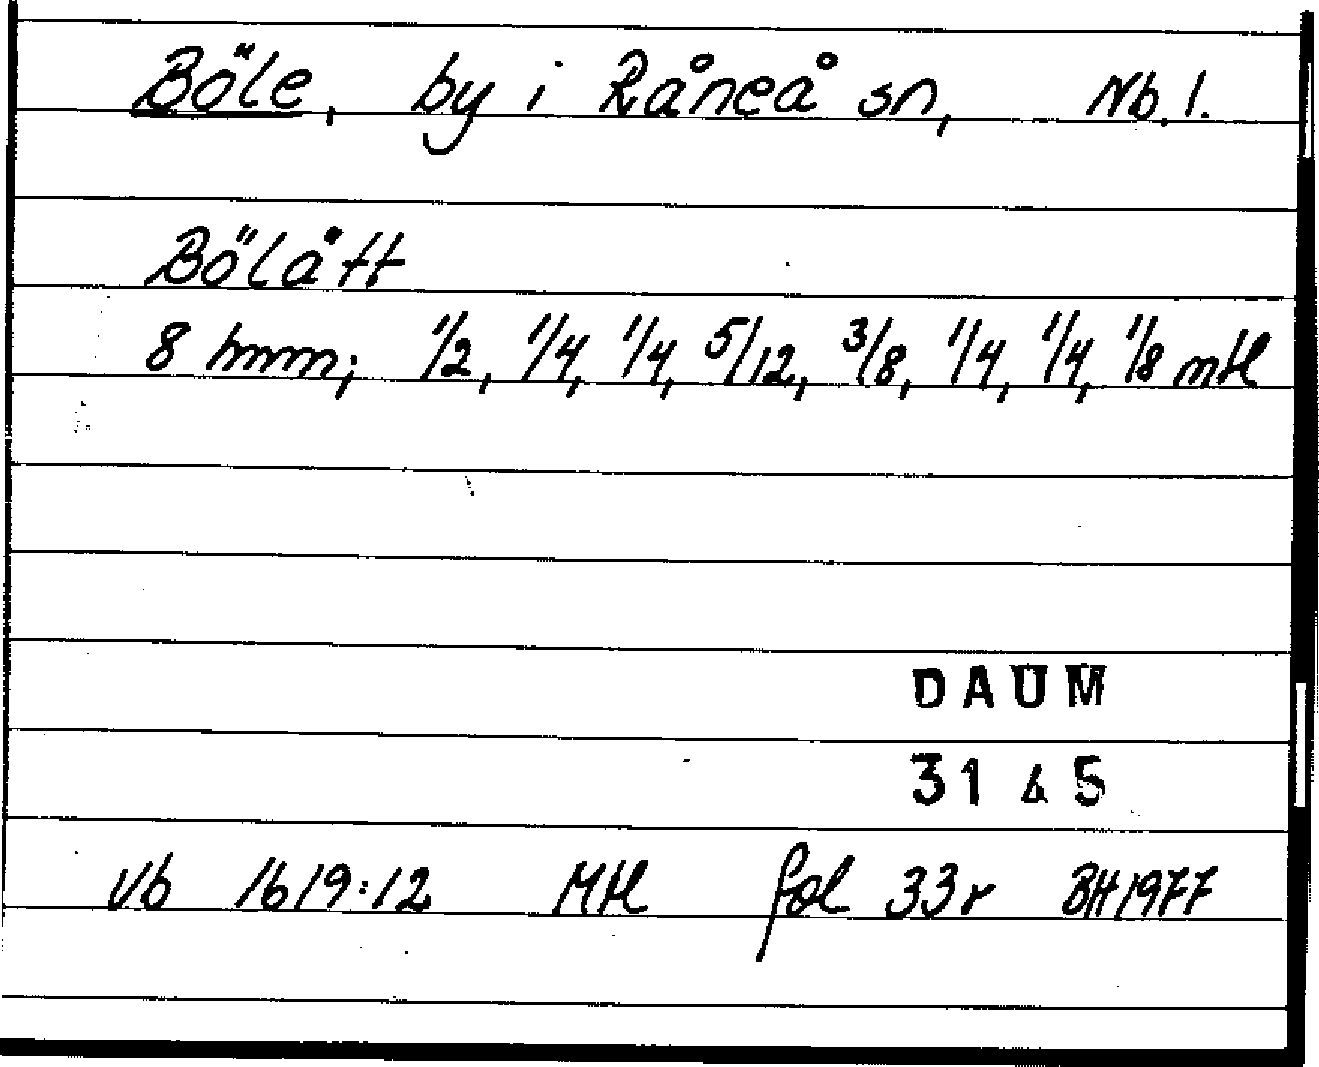 Böle, by i Råneå sn, Nb. l.
Bölätt
8 hmm; 1/2, 1/4, 1/4, 5/12, 3/8, 1/4, 1/4, 1/8 mtl
DAUM
31 5
Vb 1619:12 Mtl fol 33r BH 1977